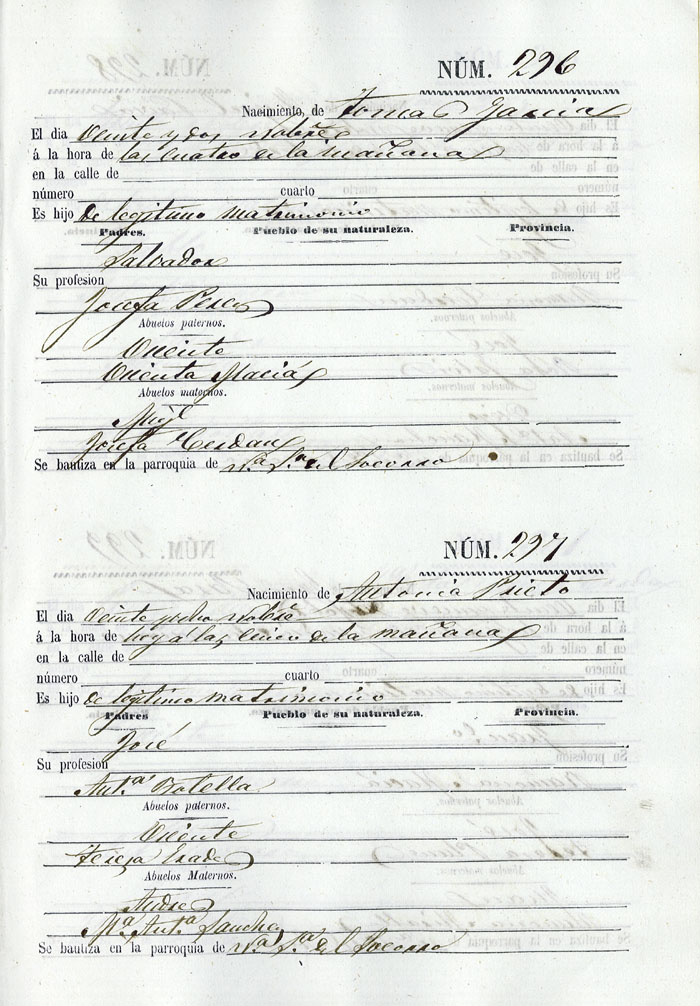 NÚM. 296
Nacimiento, de Tomas Garcia
El dia veinte y dos
á la hora de las cuatro de la mañana
en la calle de
número cuarto
Es hijo de legitimo matrimonio
Padres. Pueblo de su naturaleza. Provincia.
Salvador
Su profesion
Josefa Perez
Abuelos paternos.
Vicente
Vicenta Maciá
Abuelos maternos.
Josefa Cerdan
Se bautiza en la parroquia de Nª Sª del Socorro
NÚM. 297
Nacimiento de Antonia Prieto
El dia veinte
á la hora de hoy á las cinco de la mañana
en la calle de
número cuarto
Es hijo de legitimo matrimonio
Padres Pueblo de su naturaleza. Provincia.
José
Su profesion
Antª Botella
Abuelos paternos.
Vicente
Teresa
Abuelos Maternos.
Andres
Mª Antª Sanchez
Se bautiza en la parroquia de Nª Sª del Socorro